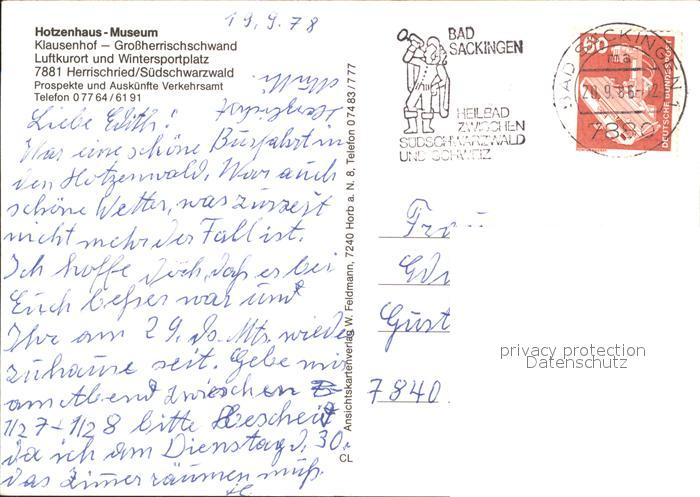 19.9.78
Hotzenhaus - Museum
Klausenhof – Großherrischschwand
Luftkurort und Wintersportplatz
7881 Herrischried/Südschwarzwald
Prospekte und Auskünfte Verkehrsamt
Telefon 0 77 64 / 61 91
Liebe Edith!
War eine schöne Busfahrt in
den Hotzenwald. War auch
schöne Wetter, was zurzeit
nicht mehr der Fall ist.
Ich hoffe doch, daß es bei
Euch besser war und
Ihr am 29. ds. Mts. wieder
zuhause seit. Gebe mir
am Abend zwischen
1/2 7 – 1/2 8 bitte Bescheid
da ich am Dienstag d. 30.
das Zimmer räumen muß.
Herzlichst
CL
Ansichtskartenverlag W. Feldmann, 7240 Horb a. N. 8, Telefon 0 74 83 / 777
BAD
SÄCKINGEN
HEILBAD
ZWISCHEN
SÜDSCHWARZWALD
UND SCHWEIZ
BAD SÄCKINGEN 1
ma
7880
60
DEUTSCHE BUNDESPOST
Fra
Edi
Gust
7840
privacy protection
Datenschutz